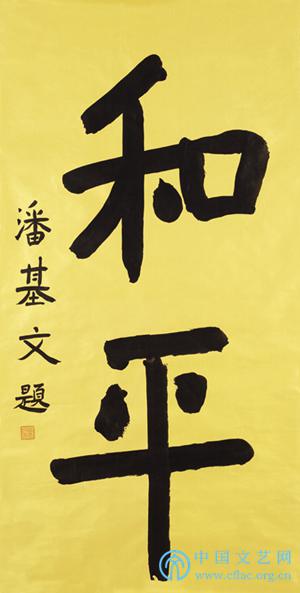 和平
潘基文題
中国文艺网
www.cflac.org.cn